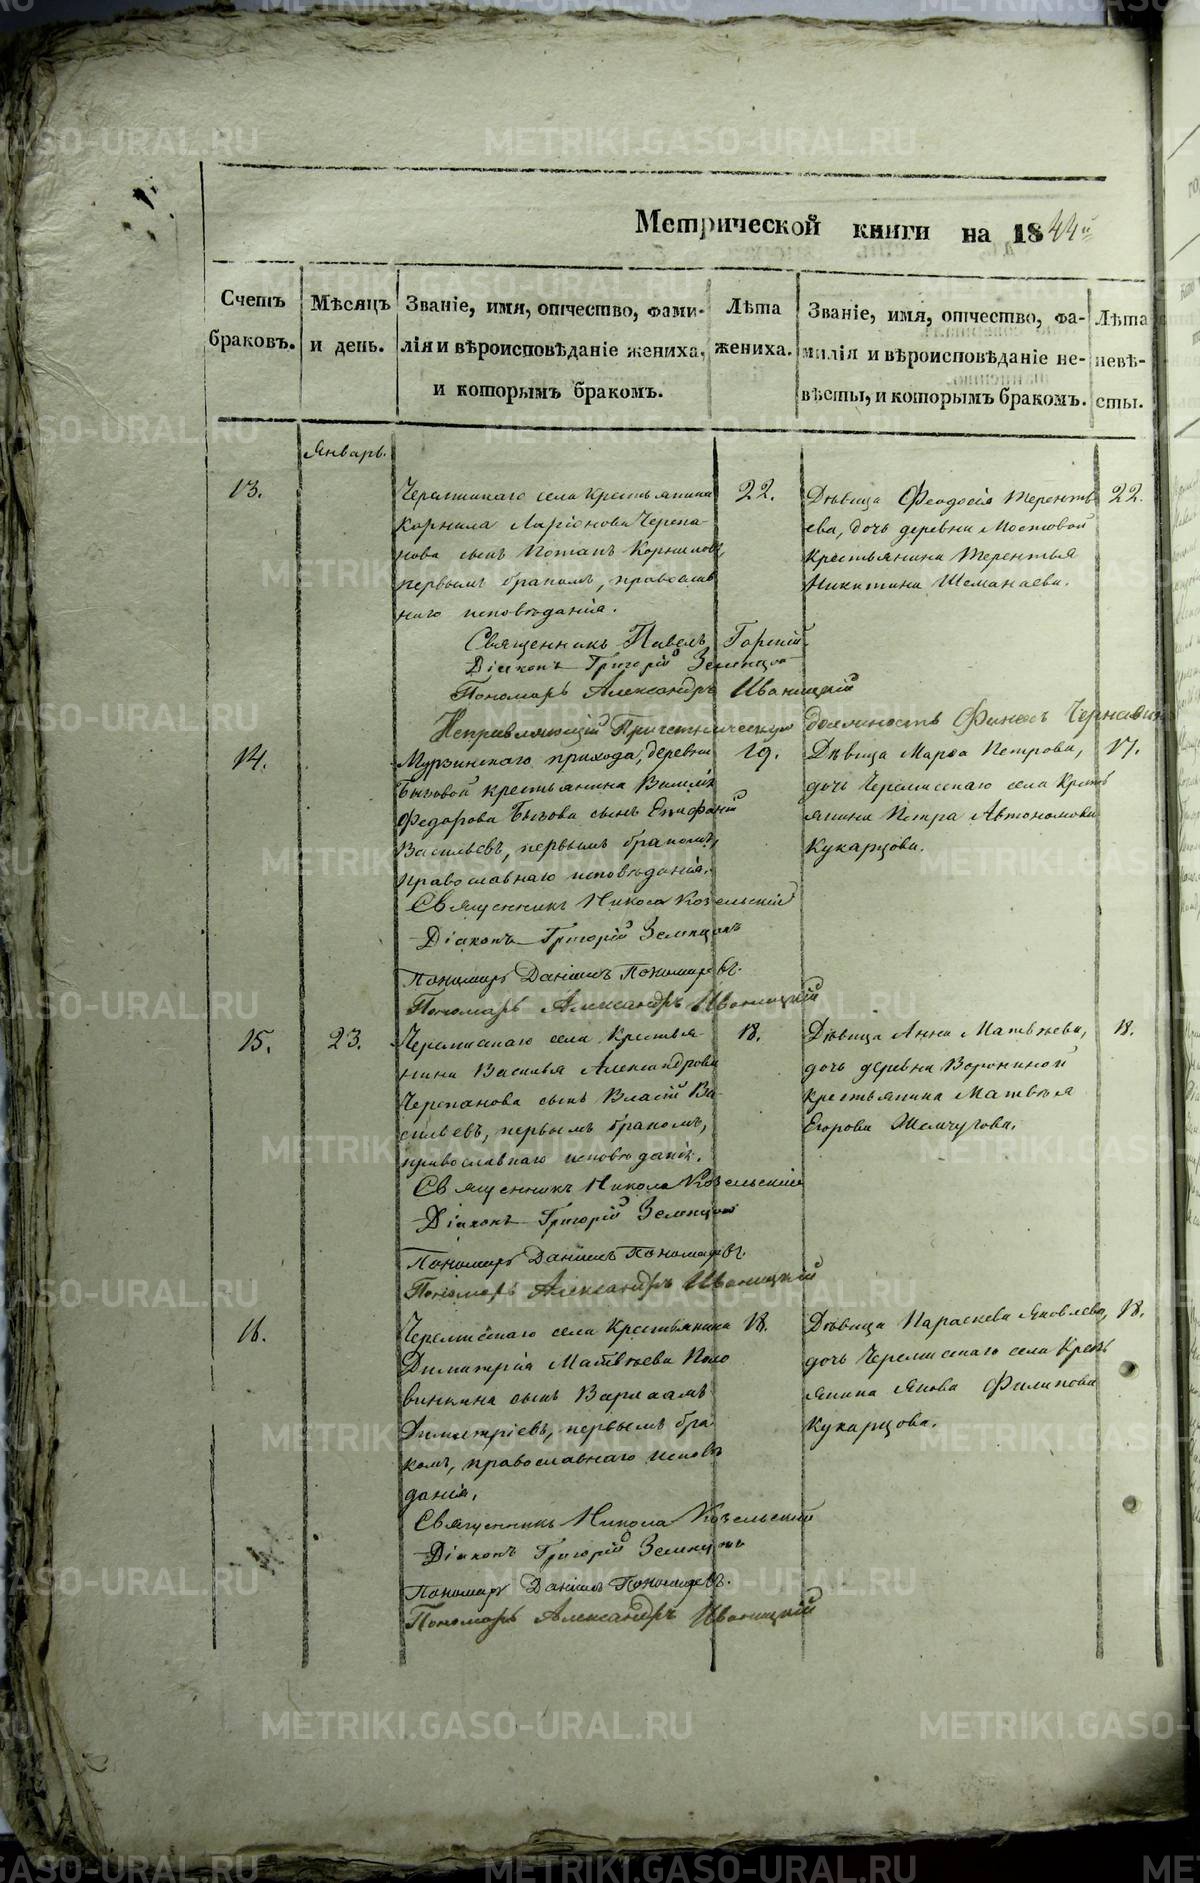 METRIKI.GASO-URAL.RU
Метрической книги на 1844й
Счетъ браковъ.
Мѣсяцъ и день.
Званіе, имя, отчество, фами-
лія и вѣроисповѣданіе жениха,
и которымъ бракомъ.
Лѣта жениха.
Званіе, имя, отчество, фа-
милія и вѣроисповѣданіе не-
вѣсты, и которымъ бракомъ.
Лѣта невѣ-
сты.
Январь.
13.
Черемисскаго села Крестьянина
Корнила Ларіонова Черепа-
нова сынъ Потапъ Корниловъ,
первымъ бракомъ, православ
наго исповѣданія.
22.
Дѣвица Феодосія Теренть
ева, дочь деревни Мостовой
крестьянина Терентья
Никитина Шеманаева.
22.
Священникъ Павелъ Горный
Діаконъ Григорій Земляницынъ
Пономарь Александръ Иваницкій
Исправляющій Причетническую должность Финоъ Чернавинъ
14.
Мурзинскаго прихода, деревни
Бызовой крестьянина Василія
Федорова Бызова сынъ Епифаній
Васильевъ, первымъ бракомъ,
православнаго исповѣданія.
19.
Дѣвица Марѳа Петрова,
дочь Черемисскаго села Кресть
янина Петра Автономова
Кукарцова.
17.
Священникъ Никола Козельскій
Діаконъ Григорій
Пономарь Даніилъ Пономаревъ.
Пономарь Александръ Иваницкій
15.
23.
Черемисскаго села Крестья-
нина Василья Александрова
Черепанова сынъ Власій Ва-
сильевъ, первымъ бракомъ,
православнаго исповѣданія.
18.
Дѣвица Анна Матвѣева,
дочь деревни Ворониной
крестьянина Матвѣя
Егорова Жемчугова.
18.
Священникъ Никола Козельскій
Діаконъ Григорій
Пономарь Даніилъ Пономаревъ.
Пономарь Александръ Иваницкій
16.
Черемисскаго села Крестьянина
Димитрія Матвѣева Поло
винкина сынъ Варлаамъ
Димитріевъ, первымъ бра
комъ, православнаго исповѣ
данія.
18.
Дѣвица Параскева Яковлева,
дочь Черемисскаго села Крестъ
янина Якова Филипова
Кукарцова.
18.
Священникъ Никола Козельскій
Діаконъ Григорій
Пономарь Даніилъ Пономаревъ.
Пономарь Александръ Иваницкій